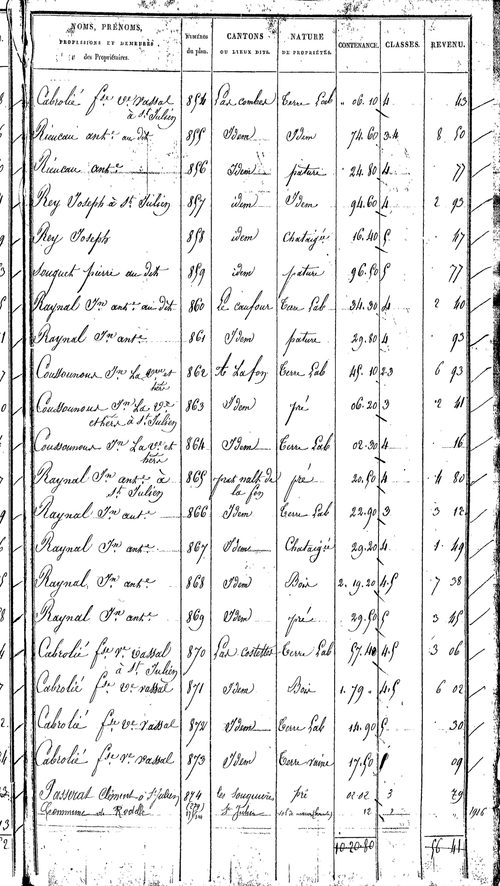 NOMS, PRÉNOMS, PROFESSIONS ET DEMEURES des Propriétaires. | Numéros du plan. | CANTONS OU LIEUX DITS. | NATURE DE PROPRIÉTÉS. | CONTENANCE. | CLASSES. | REVENU.
Cabrolié fse ve vassal à St Julien 854 Las combes Terre Lab 06.10 4 43
Riucau ante au dit 855 Idem Idem 74.60 3.4 8 50
Riucau ante 856 Idem pature 24.80 4 77
Rey Joseph à St Julien 857 idem Idem 94.60 4 2 93
Rey Joseph 858 idem Chataigée 16.40 5 47
Souquet pierre au dit 859 idem pature 96.50 5 77
Raynal Jn ante au dit 860 Le caufour Terre Lab 34.30 4 2 40
Raynal Jn ante 861 Idem pature 29.80 4 93
Coussounous Jn La veve et hers 862 A La fon Terre Lab 45.10 2 3 6 93
Coussounous Jn La ve et hers à St Julien 863 Idem pré 06.20 3 2 41
Coussounous Jn La ve et hers 864 Idem Terre Lab 02.30 4 16
Raynal Jn ante à St Julien 865 prat nalt de la fon pré 20.50 4 4 80
Raynal Jn ante 866 Idem Terre Lab 22.90 3 3 12
Raynal Jn ante 867 Idem Chataigée 29.20 4 1 49
Raynal Jn ante 868 Idem Bois 2.19.20 4.5 7 38
Raynal Jn ante 869 Idem pré 29.50 5 3 45
Cabrolié fse ve vassal à St Julien 870 Las costettes Terre Lab 57.40 4.5 3 06
Cabrolié fse ve vassal 871 Idem Bois 1.79 4.5 6 02
Cabrolié fse ve vassal 872 Idem Terre Lab 14.90 5 30
Cabrolié fse ve vassal 873 Idem Terre vaine 17.50 09
Passerat Clément à St Julien 874 les pré 02.02 3 79
Commune de St Julien 12 1916
10.20.80 56 41